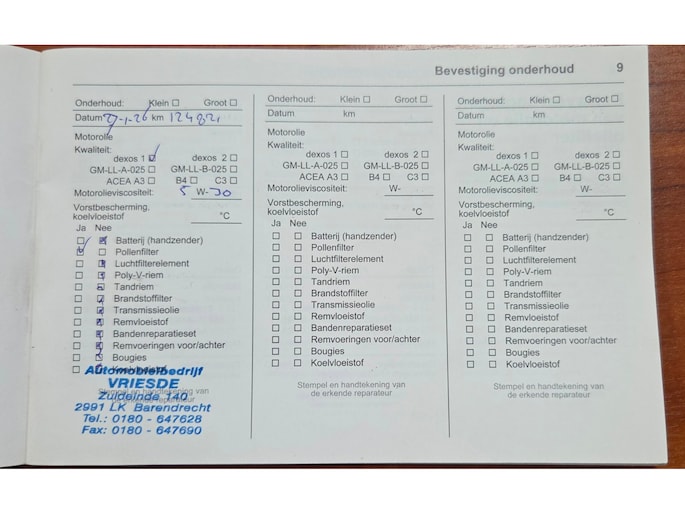 Bevestiging onderhoud 9
Onderhoud: Klein ☐ Groot ☐
Datum 27-1-26 km 124821
Motorolie
Kwaliteit:
dexos 1 ☑ dexos 2 ☐
GM-LL-A-025 ☐ GM-LL-B-025 ☐
ACEA A3 ☐ B4 ☐ C3 ☐
Motorolieviscositeit: 5 W- 30
Vorstbescherming,
koelvloeistof °C
Ja Nee
Batterij (handzender)
Pollenfilter
Luchtfilterelement
Poly-V-riem
Tandriem
Brandstoffilter
Transmissieolie
Remvloeistof
Bandenreparatieset
Remvoeringen voor/achter
Bougies
Koelvloeistof
Stempel en handtekening van
de erkende reparateur
Automobielbedrijf
VRIESDE
Zuideinde 140
2991 LK Barendrecht
Tel.: 0180 - 647628
Fax: 0180 - 647690
Onderhoud: Klein ☐ Groot ☐
Datum km
Motorolie
Kwaliteit:
dexos 1 ☐ dexos 2 ☐
GM-LL-A-025 ☐ GM-LL-B-025 ☐
ACEA A3 ☐ B4 ☐ C3 ☐
Motorolieviscositeit: W-
Vorstbescherming,
koelvloeistof °C
Ja Nee
☐ ☐ Batterij (handzender)
☐ ☐ Pollenfilter
☐ ☐ Luchtfilterelement
☐ ☐ Poly-V-riem
☐ ☐ Tandriem
☐ ☐ Brandstoffilter
☐ ☐ Transmissieolie
☐ ☐ Remvloeistof
☐ ☐ Bandenreparatieset
☐ ☐ Remvoeringen voor/achter
☐ ☐ Bougies
☐ ☐ Koelvloeistof
Stempel en handtekening van
de erkende reparateur
Onderhoud: Klein ☐ Groot ☐
Datum km
Motorolie
Kwaliteit:
dexos 1 ☐ dexos 2 ☐
GM-LL-A-025 ☐ GM-LL-B-025 ☐
ACEA A3 ☐ B4 ☐ C3 ☐
Motorolieviscositeit: W-
Vorstbescherming,
koelvloeistof °C
Ja Nee
☐ ☐ Batterij (handzender)
☐ ☐ Pollenfilter
☐ ☐ Luchtfilterelement
☐ ☐ Poly-V-riem
☐ ☐ Tandriem
☐ ☐ Brandstoffilter
☐ ☐ Transmissieolie
☐ ☐ Remvloeistof
☐ ☐ Bandenreparatieset
☐ ☐ Remvoeringen voor/achter
☐ ☐ Bougies
☐ ☐ Koelvloeistof
Stempel en handtekening van
de erkende reparateur